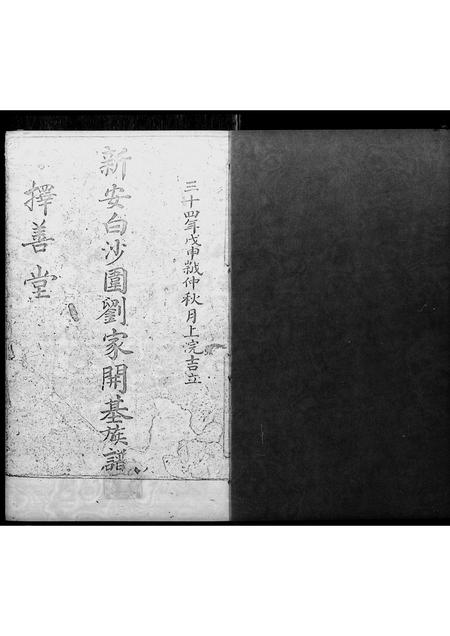 三十四年戊申歲仲秋月上浣吉立
新安白沙圍劉家開基族譜
擇善堂